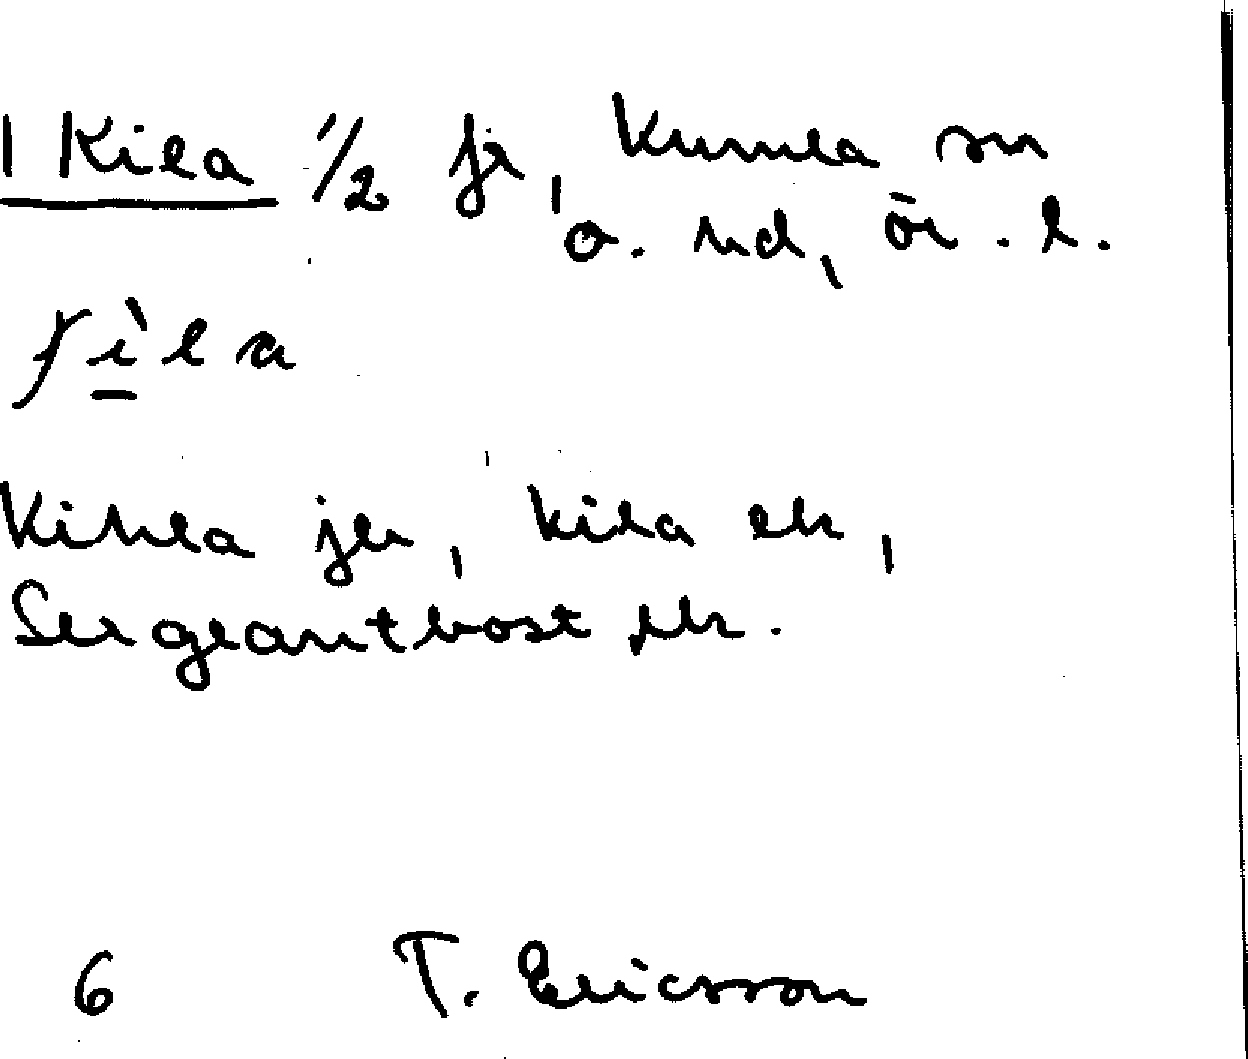 1 Kila 1/2 fr, Kumla sn
o. hd, ör. l.
Kihla jb, Kila ek,
Sergeantbost
6 T. Ericsson